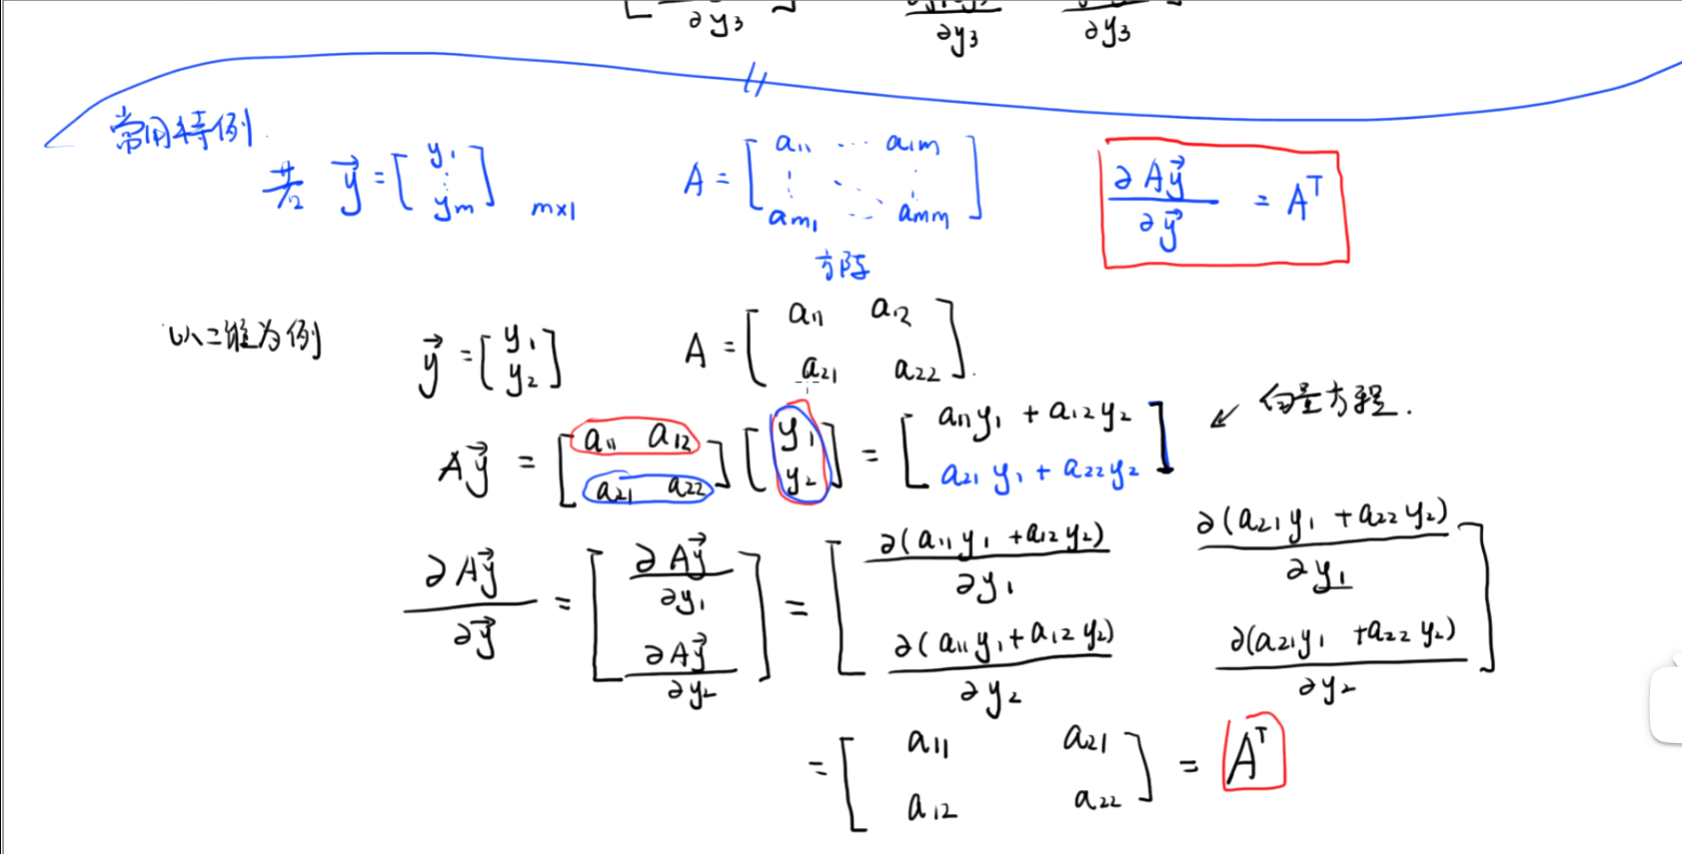 ∂y₃ ∂y₃ ∂y₃
常用特例.
若 y⃗ = [y₁ ⋮ yₘ] m×1 A = [a₁₁ ⋯ a₁ₘ ⋮ ⋱ ⋮ aₘ₁ ⋯ aₘₘ] ∂Ay⃗/∂y⃗ = Aᵀ
方阵
以二维为例 y⃗ = [y₁ y₂] A = [a₁₁ a₁₂ a₂₁ a₂₂].
Ay⃗ = [a₁₁ a₁₂ a₂₁ a₂₂] [y₁ y₂] = [a₁₁y₁ + a₁₂y₂ a₂₁y₁ + a₂₂y₂] ↙ 向量方程.
∂Ay⃗/∂y⃗ = [∂Ay⃗/∂y₁ ∂Ay⃗/∂y₂] = [∂(a₁₁y₁ + a₁₂y₂)/∂y₁ ∂(a₂₁y₁ + a₂₂y₂)/∂y₁ ∂(a₁₁y₁ + a₁₂y₂)/∂y₂ ∂(a₂₁y₁ + a₂₂y₂)/∂y₂]
= [a₁₁ a₂₁ a₁₂ a₂₂] = Aᵀ